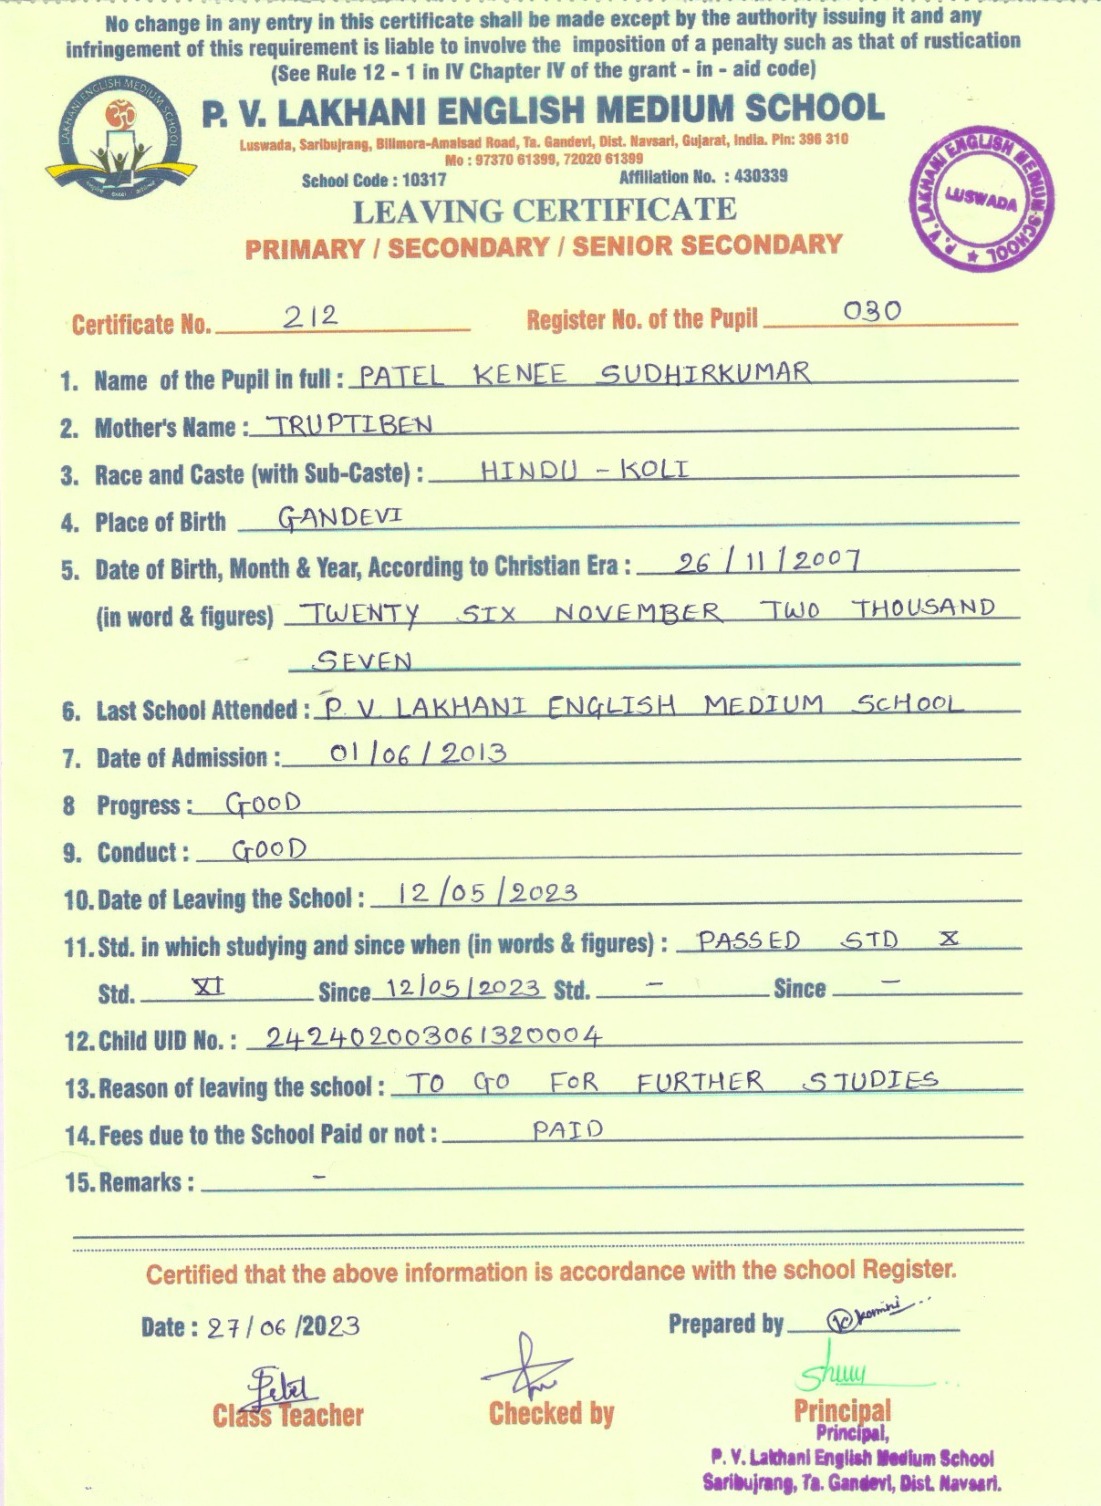 No change in any entry in this certificate shall be made except by the authority issuing it and any
infringement of this requirement is liable to involve the imposition of a penalty such as that of rustication
(See Rule 12 - 1 in IV Chapter IV of the grant - in - aid code)
LAKHANI ENGLISH MEDIUM SCHOOL
P. V. LAKHANI ENGLISH MEDIUM SCHOOL
Luswada, Saribujrang, Billmora-Amalsad Road, Ta. Gandevi, Dist. Navsari, Gujarat, India. Pin: 396 310
Mo : 97370 61399, 72020 61399
School Code : 10317 Affiliation No. : 430339
P. V. LAKHANI ENGLISH MEDIUM SCHOOL
LUSWADA
LEAVING CERTIFICATE
PRIMARY / SECONDARY / SENIOR SECONDARY
Certificate No. 212 Register No. of the Pupil 030
1. Name of the Pupil in full : PATEL KENEE SUDHIRKUMAR
2. Mother's Name : TRUPTIBEN
3. Race and Caste (with Sub-Caste) : HINDU - KOLI
4. Place of Birth GANDEVI
5. Date of Birth, Month & Year, According to Christian Era : 26 / 11 / 2007
(in word & figures) TWENTY SIX NOVEMBER TWO THOUSAND
SEVEN
6. Last School Attended : P. V. LAKHANI ENGLISH MEDIUM SCHOOL
7. Date of Admission : 01 / 06 / 2013
8 Progress : GOOD
9. Conduct : GOOD
10. Date of Leaving the School : 12 / 05 / 2023
11. Std. in which studying and since when (in words & figures) : PASSED STD X
Std. XI Since 12/05/2023 Std. - Since -
12. Child UID No. : 242402003061320004
13. Reason of leaving the school : TO GO FOR FURTHER STUDIES
14. Fees due to the School Paid or not : PAID
15. Remarks : -
Certified that the above information is accordance with the school Register.
Date : 27 / 06 /2023 Prepared by
Class Teacher Checked by Principal
Principal,
P. V. Lakhani English Medium School
Saribujrang, Ta. Gandevi, Dist. Navsari.